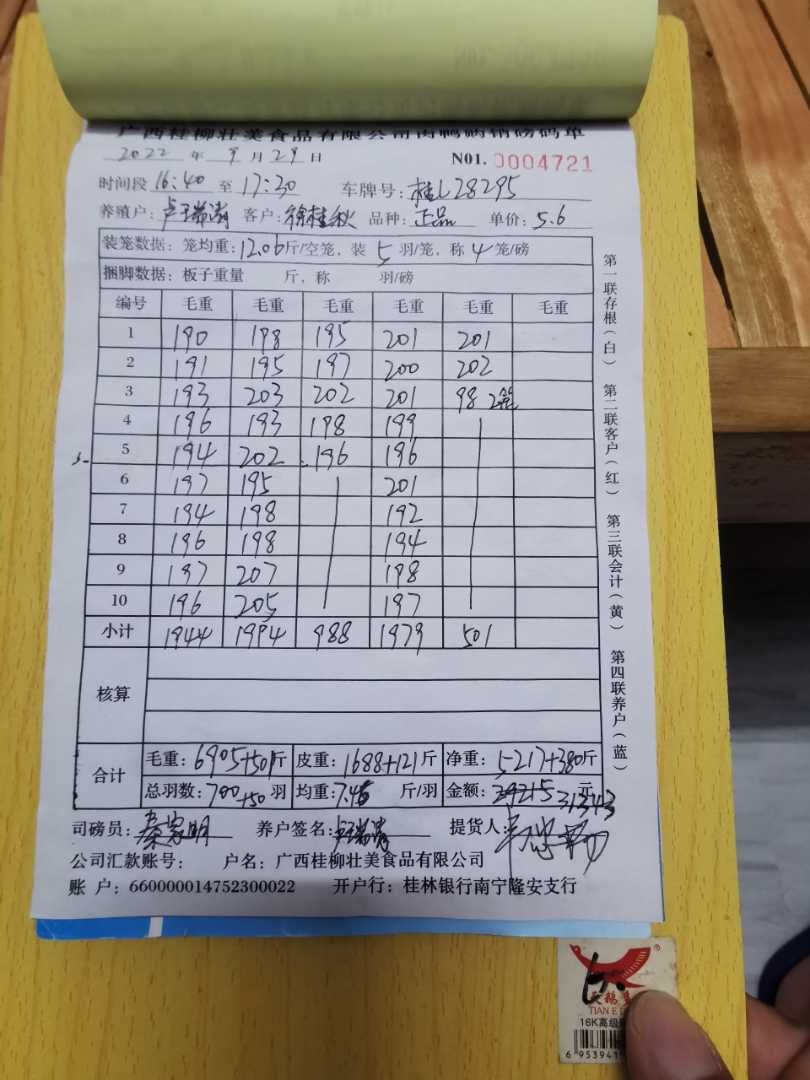 广西桂柳壮美食品有限公司肉鸭销磅码单
2022 年 9 月 29 日 N01. 0004721
时间段 16:40 至 17:30 车牌号: 桂L28295
养殖户: 客户: 徐桂秋 品种: 正品 单价: 5.6
装笼数据: 笼均重: 12.06 斤/空笼, 装 5 羽/笼, 称 4 笼/磅
捆脚数据: 板子重量 斤, 称 羽/磅
编号 毛重 毛重 毛重 毛重 毛重 毛重
1 190 198 195 201 201
2 191 195 197 200 202
3 193 203 202 201 98 2笼
4 196 193 198 199
5 194 202 196 196
6 197 195 201
7 194 198 192
8 196 198 194
9 197 207 198
10 196 205 197
小计 1944 1994 988 1979 501
核算
合计
毛重: 6905+501斤 皮重: 1688+121斤 净重: 5217+380斤
总羽数: 700+50 羽 均重: 7.45 斤/羽 金额: 29215 31343 元
司磅员: 养户签名: 提货人:
公司汇款账号: 户名: 广西桂柳壮美食品有限公司
账 户: 660000014752300022 开户行: 桂林银行南宁隆安支行
第一联存根(白) 第二联客户(红) 第三联会计(黄) 第四联养户(蓝)
TIAN E
16K高级
6 95394